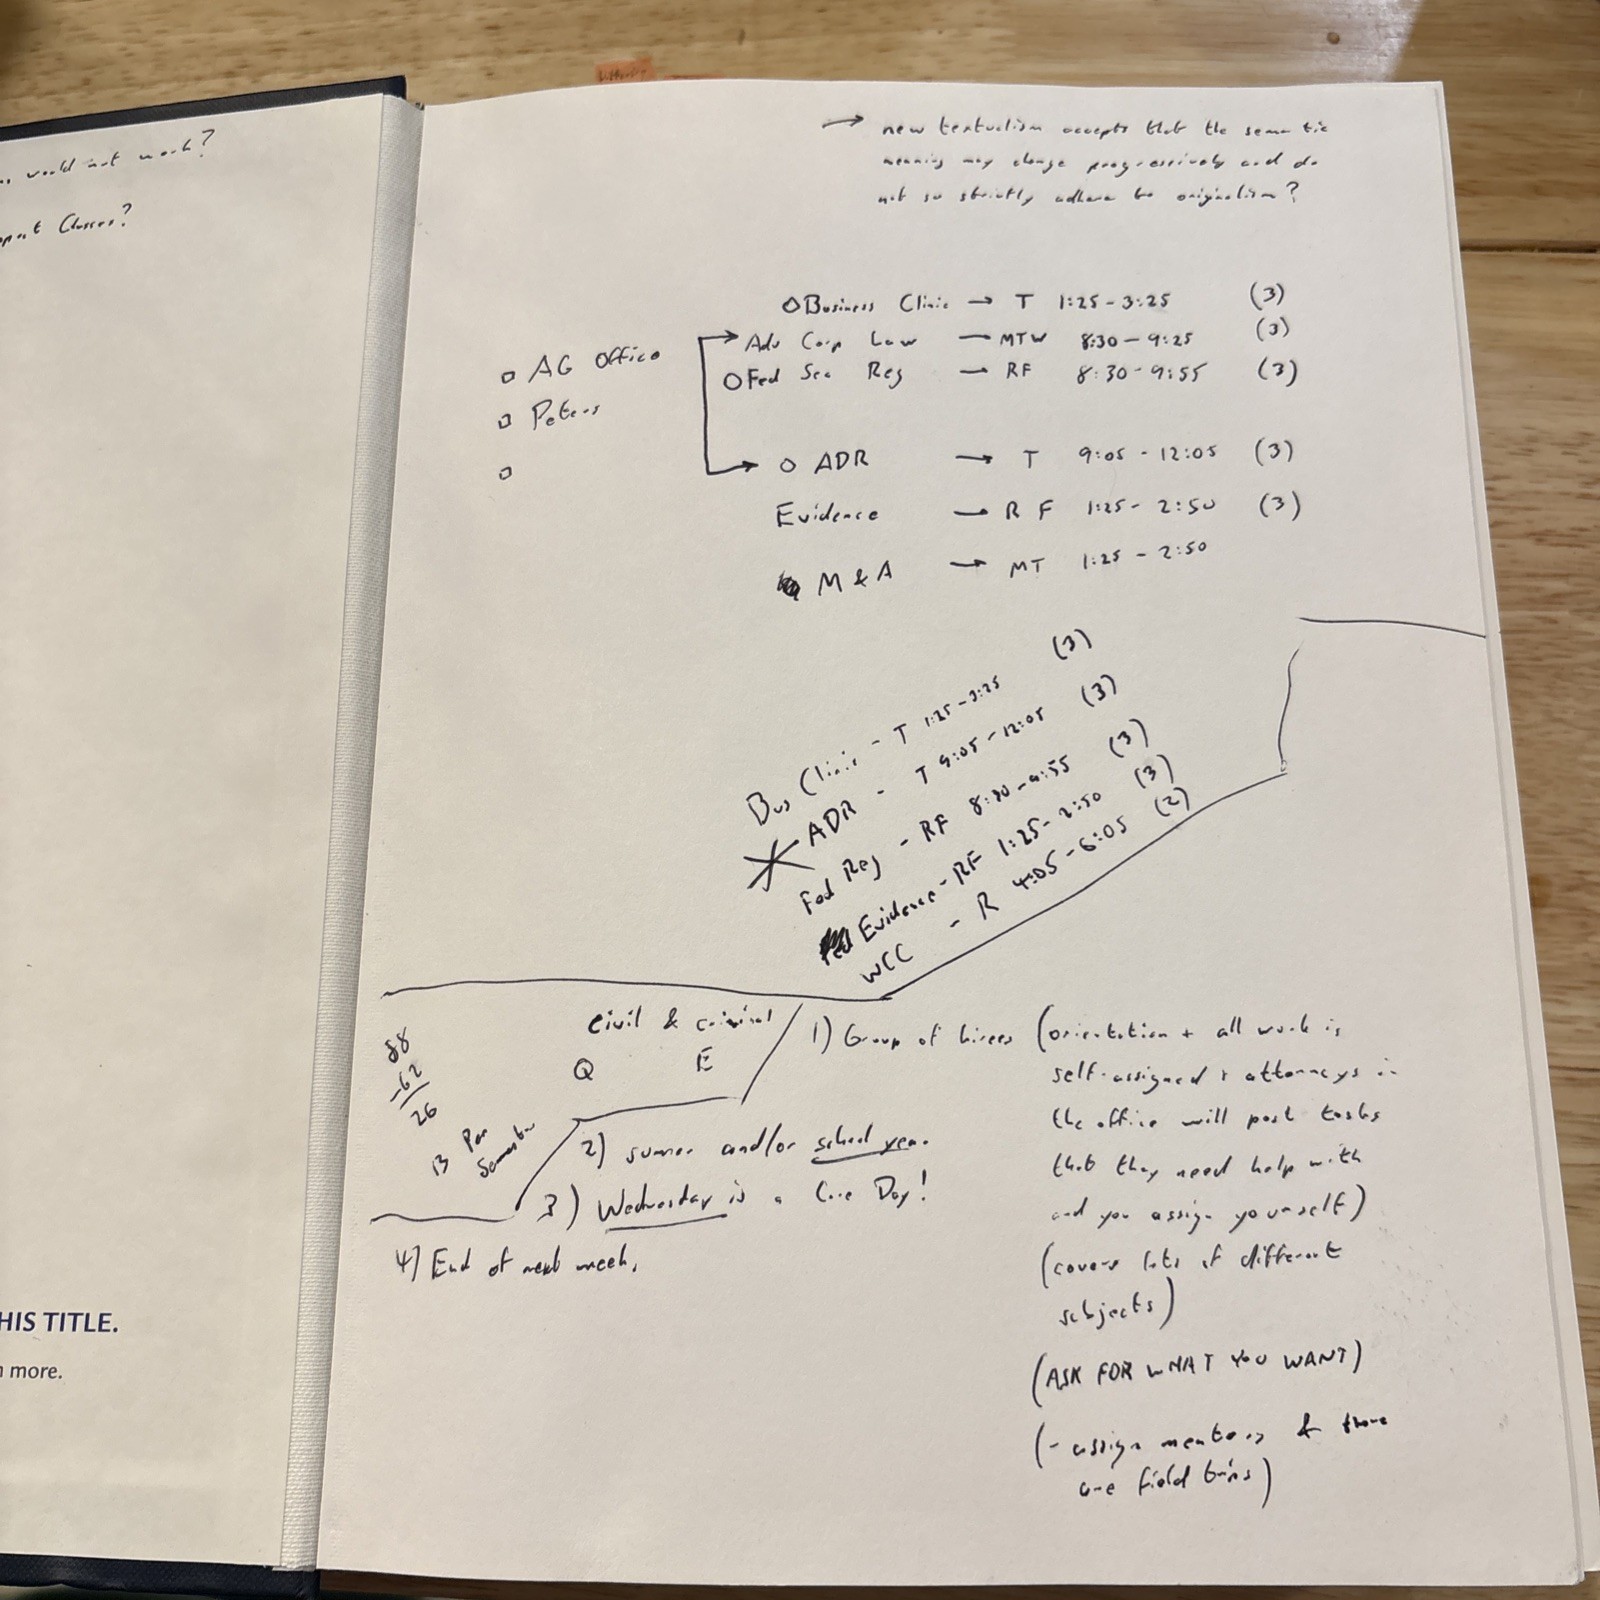 would not work?
Clauses?
HIS TITLE.
more.
→ new textualism accepts that the semantic
meaning may change progressively and do
not so strictly adhere to originalism?
Business Clinic → T 1:25-3:25 (3)
AG Office
Adv Corp Law → MTW 8:30-9:25 (3)
Fed Sec Reg → RF 8:30-9:55 (3)
Peters
ADR → T 9:05-12:05 (3)
Evidence → R F 1:25-2:50 (3)
M & A → MT 1:25-2:50
Bus Clinic - T 1:25-3:25 (3)
ADR - T 9:05-12:05 (3)
Fed Reg - RF 8:30-9:55 (3)
Evidence - RF 1:25-2:50 (3)
WCC - R 4:05-6:05 (2)
88
-62
26
13 Per
Semester
civil & criminal
Q E
1) Group of hirees (orientation + all work is
self-assigned + attorneys in
the office will post tasks
that they need help with
and you assign yourself)
(covers lots of different
subjects)
(ASK FOR WHAT YOU WANT)
(- assign mentors & there
are field trips)
2) summer and/or school year.
3) Wednesday is a Core Day!
4) End of next week.